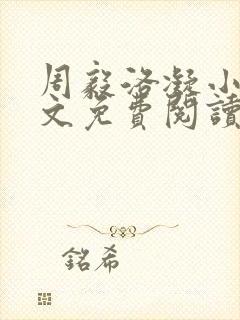 周毅洛凝小
文免費閱讀
銘希